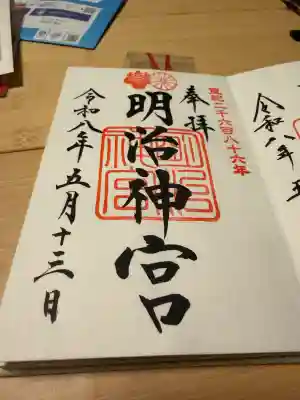 皇紀二千六百八十六年
奉拝
明治神宮
令和八年五月十三日
令和八年五